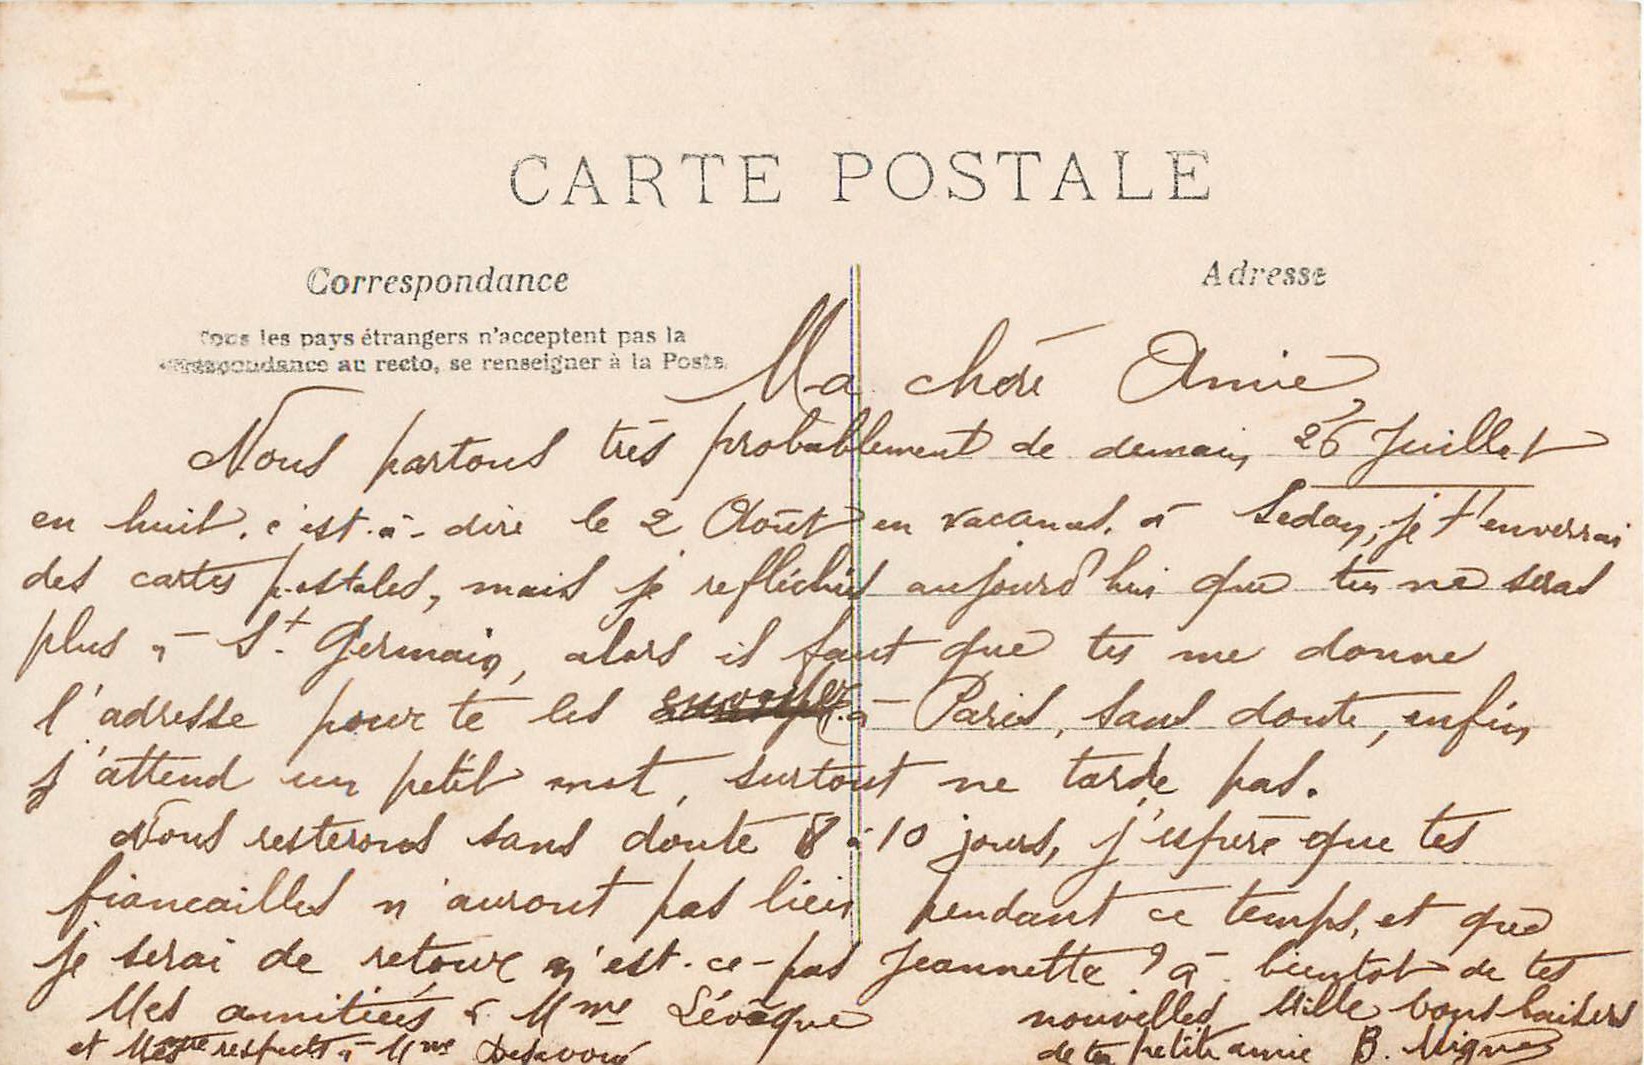 CARTE POSTALE
Correspondance
Adresse
Tous les pays étrangers n'acceptent pas la
correspondance au recto, se renseigner à la Poste.
Ma chère Amie,
Nous partons très probablement de demain 26 Juillet
en huit, c'est-à-dire le 2 Août en vacances à Sedan, je t'enverrai
des cartes postales, mais je refléchis aujourd'hui que tu ne seras
plus à St. Germain, alors il faut que tu me donne
l'adresse pour te les envoyer à Paris, sans doute, enfin
j'attend un petit mot, surtout ne tarde pas.
Nous resterons sans doute 8 à 10 jours, j'espère que tes
fiancailles n'auront pas lieu pendant ce temps, et que
je serai de retour n'est-ce-pas Jeannette? à bientot de tes
nouvelles Mille bons baisers
de ta petite amie B. Mignon
Mes amitiées à Mme Lévêque
et mes respects à Mme